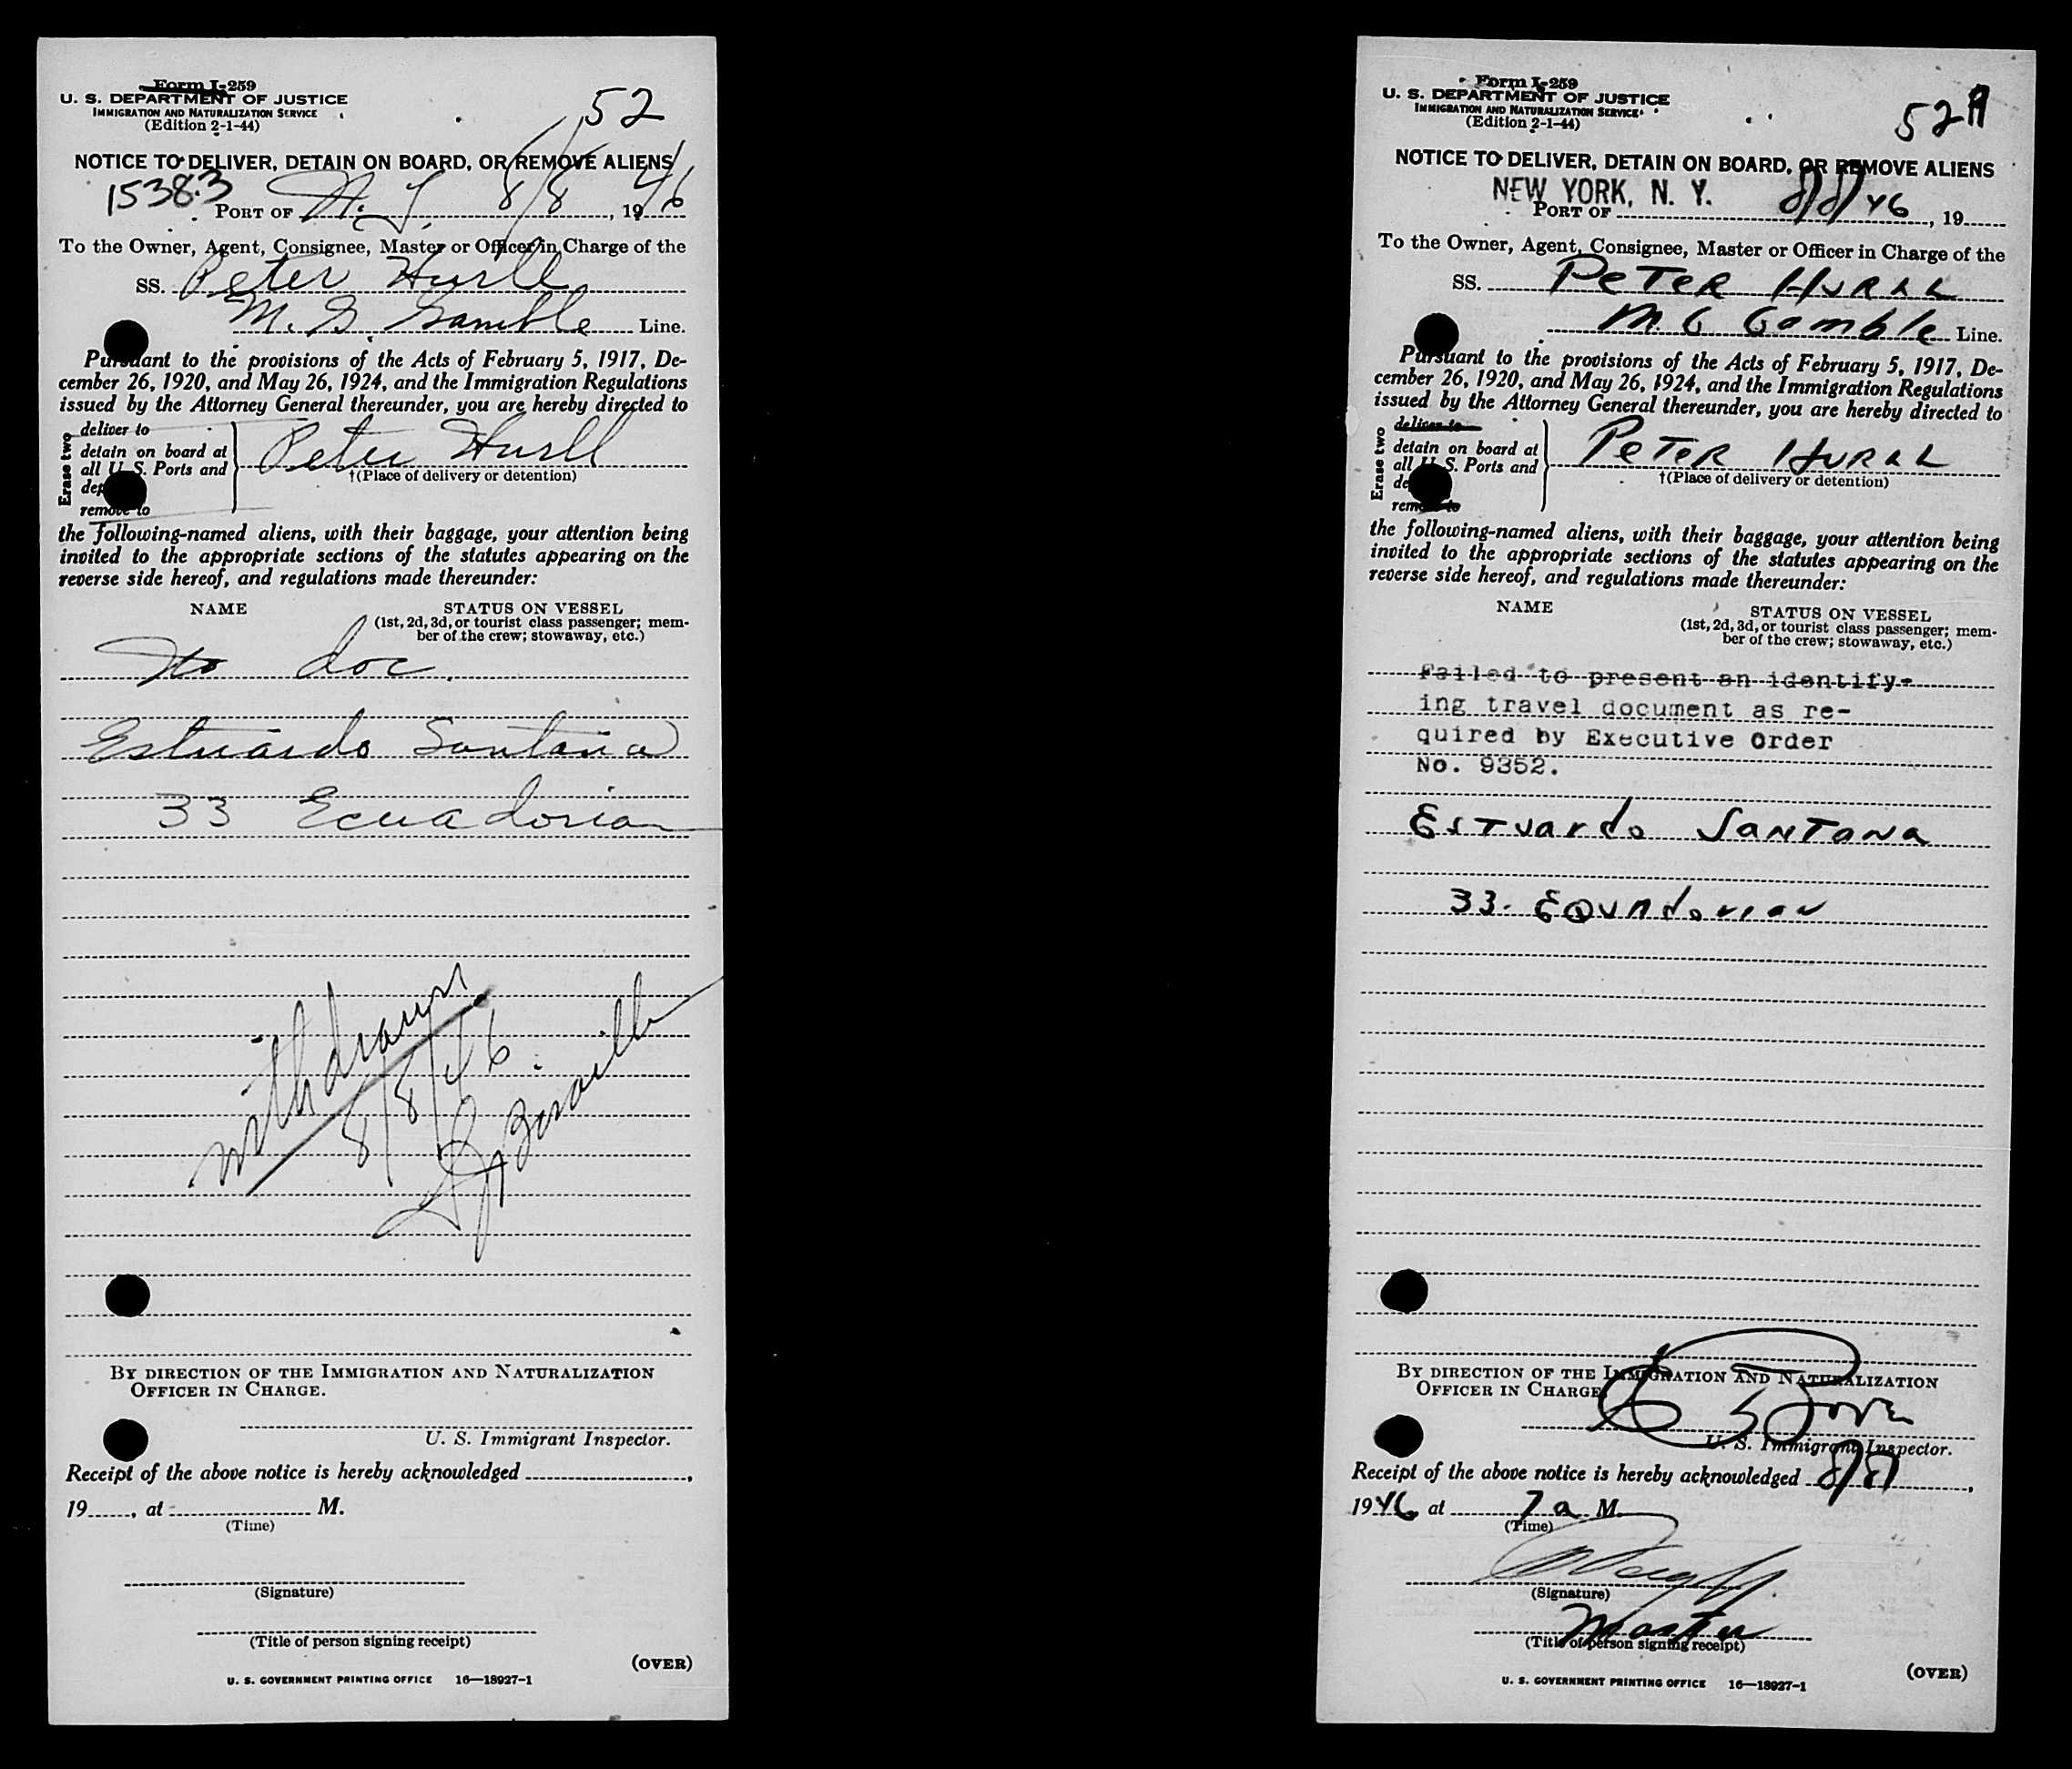 Form I-259
U. S. DEPARTMENT OF JUSTICE
IMMIGRATION AND NATURALIZATION SERVICE
(Edition 2-1-44)
52
NOTICE TO DELIVER, DETAIN ON BOARD, OR REMOVE ALIENS
15383
PORT OF N.Y. 8/8, 1946
To the Owner, Agent, Consignee, Master or Officer in Charge of the
SS. Peter Hurll
M. G Gamble Line.
Pursuant to the provisions of the Acts of February 5, 1917, De-
cember 26, 1920, and May 26, 1924, and the Immigration Regulations
issued by the Attorney General thereunder, you are hereby directed to
Erase two
deliver to
detain on board at
all U. S. Ports and
dep
remove to
Peter Hurll
†(Place of delivery or detention)
the following-named aliens, with their baggage, your attention being
invited to the appropriate sections of the statutes appearing on the
reverse side hereof, and regulations made thereunder:
NAME STATUS ON VESSEL
(1st, 2d, 3d, or tourist class passenger; mem-
ber of the crew; stowaway, etc.)
No doc.
Estuardo Santana
33 Ecuadorian
withdrawn
8/8/46
BY DIRECTION OF THE IMMIGRATION AND NATURALIZATION
OFFICER IN CHARGE.
U. S. Immigrant Inspector.
Receipt of the above notice is hereby acknowledged
19, at M.
(Time)
(Signature)
(Title of person signing receipt)
(OVER)
U. S. GOVERNMENT PRINTING OFFICE 16—18927-1
Form I-259
U. S. DEPARTMENT OF JUSTICE
IMMIGRATION AND NATURALIZATION SERVICE
(Edition 2-1-44)
52A
NOTICE TO DELIVER, DETAIN ON BOARD, OR REMOVE ALIENS
NEW YORK, N. Y.
PORT OF 8/8/46, 19
To the Owner, Agent, Consignee, Master or Officer in Charge of the
SS. PETER HURLL
M G Gamble Line.
Pursuant to the provisions of the Acts of February 5, 1917, De-
cember 26, 1920, and May 26, 1924, and the Immigration Regulations
issued by the Attorney General thereunder, you are hereby directed to
Erase two
deliver to
detain on board at
all U. S. Ports and
de
remove to
PETER HURLL
†(Place of delivery or detention)
the following-named aliens, with their baggage, your attention being
invited to the appropriate sections of the statutes appearing on the
reverse side hereof, and regulations made thereunder:
NAME STATUS ON VESSEL
(1st, 2d, 3d, or tourist class passenger; mem-
ber of the crew; stowaway, etc.)
Failed to present an identify-
ing travel document as re-
quired by Executive Order
No. 9352.
Estuardo Santana
33. Equadorian
BY DIRECTION OF THE IMMIGRATION AND NATURALIZATION
OFFICER IN CHARGE
U. S. Immigrant Inspector.
Receipt of the above notice is hereby acknowledged 8/8,
1946 at 7 a M.
(Time)
(Signature)
Master
(Title of person signing receipt)
(OVER)
U. S. GOVERNMENT PRINTING OFFICE 16—18927-1